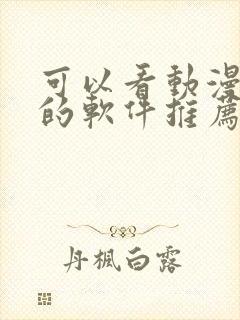 可以看動漫
的軟件推薦
丹楓白露